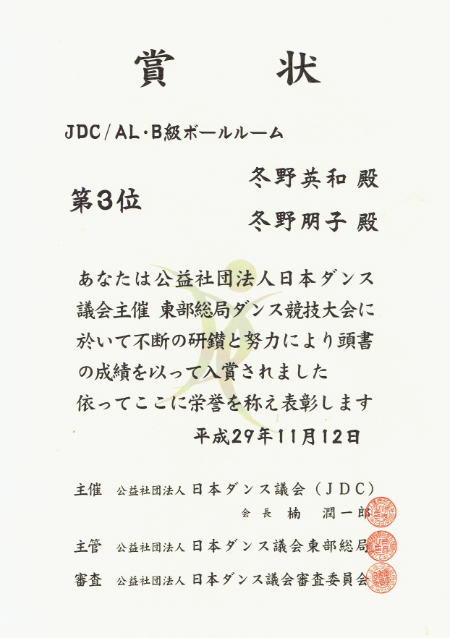 賞 状
JDC/AL・B級ボールルーム
冬野英和 殿
第3位
冬野朋子 殿
あなたは公益社団法人日本ダンス
議会主催 東部総局ダンス競技大会に
於いて不断の研鑽と努力により頭書
の成績を以って入賞されました
依ってここに栄誉を称え表彰します
平成29年11月12日
主催 公益社団法人 日本ダンス議会(JDC)
会長 楠 潤一郎
主管 公益社団法人 日本ダンス議会東部総局
審査 公益社団法人 日本ダンス議会審査委員会